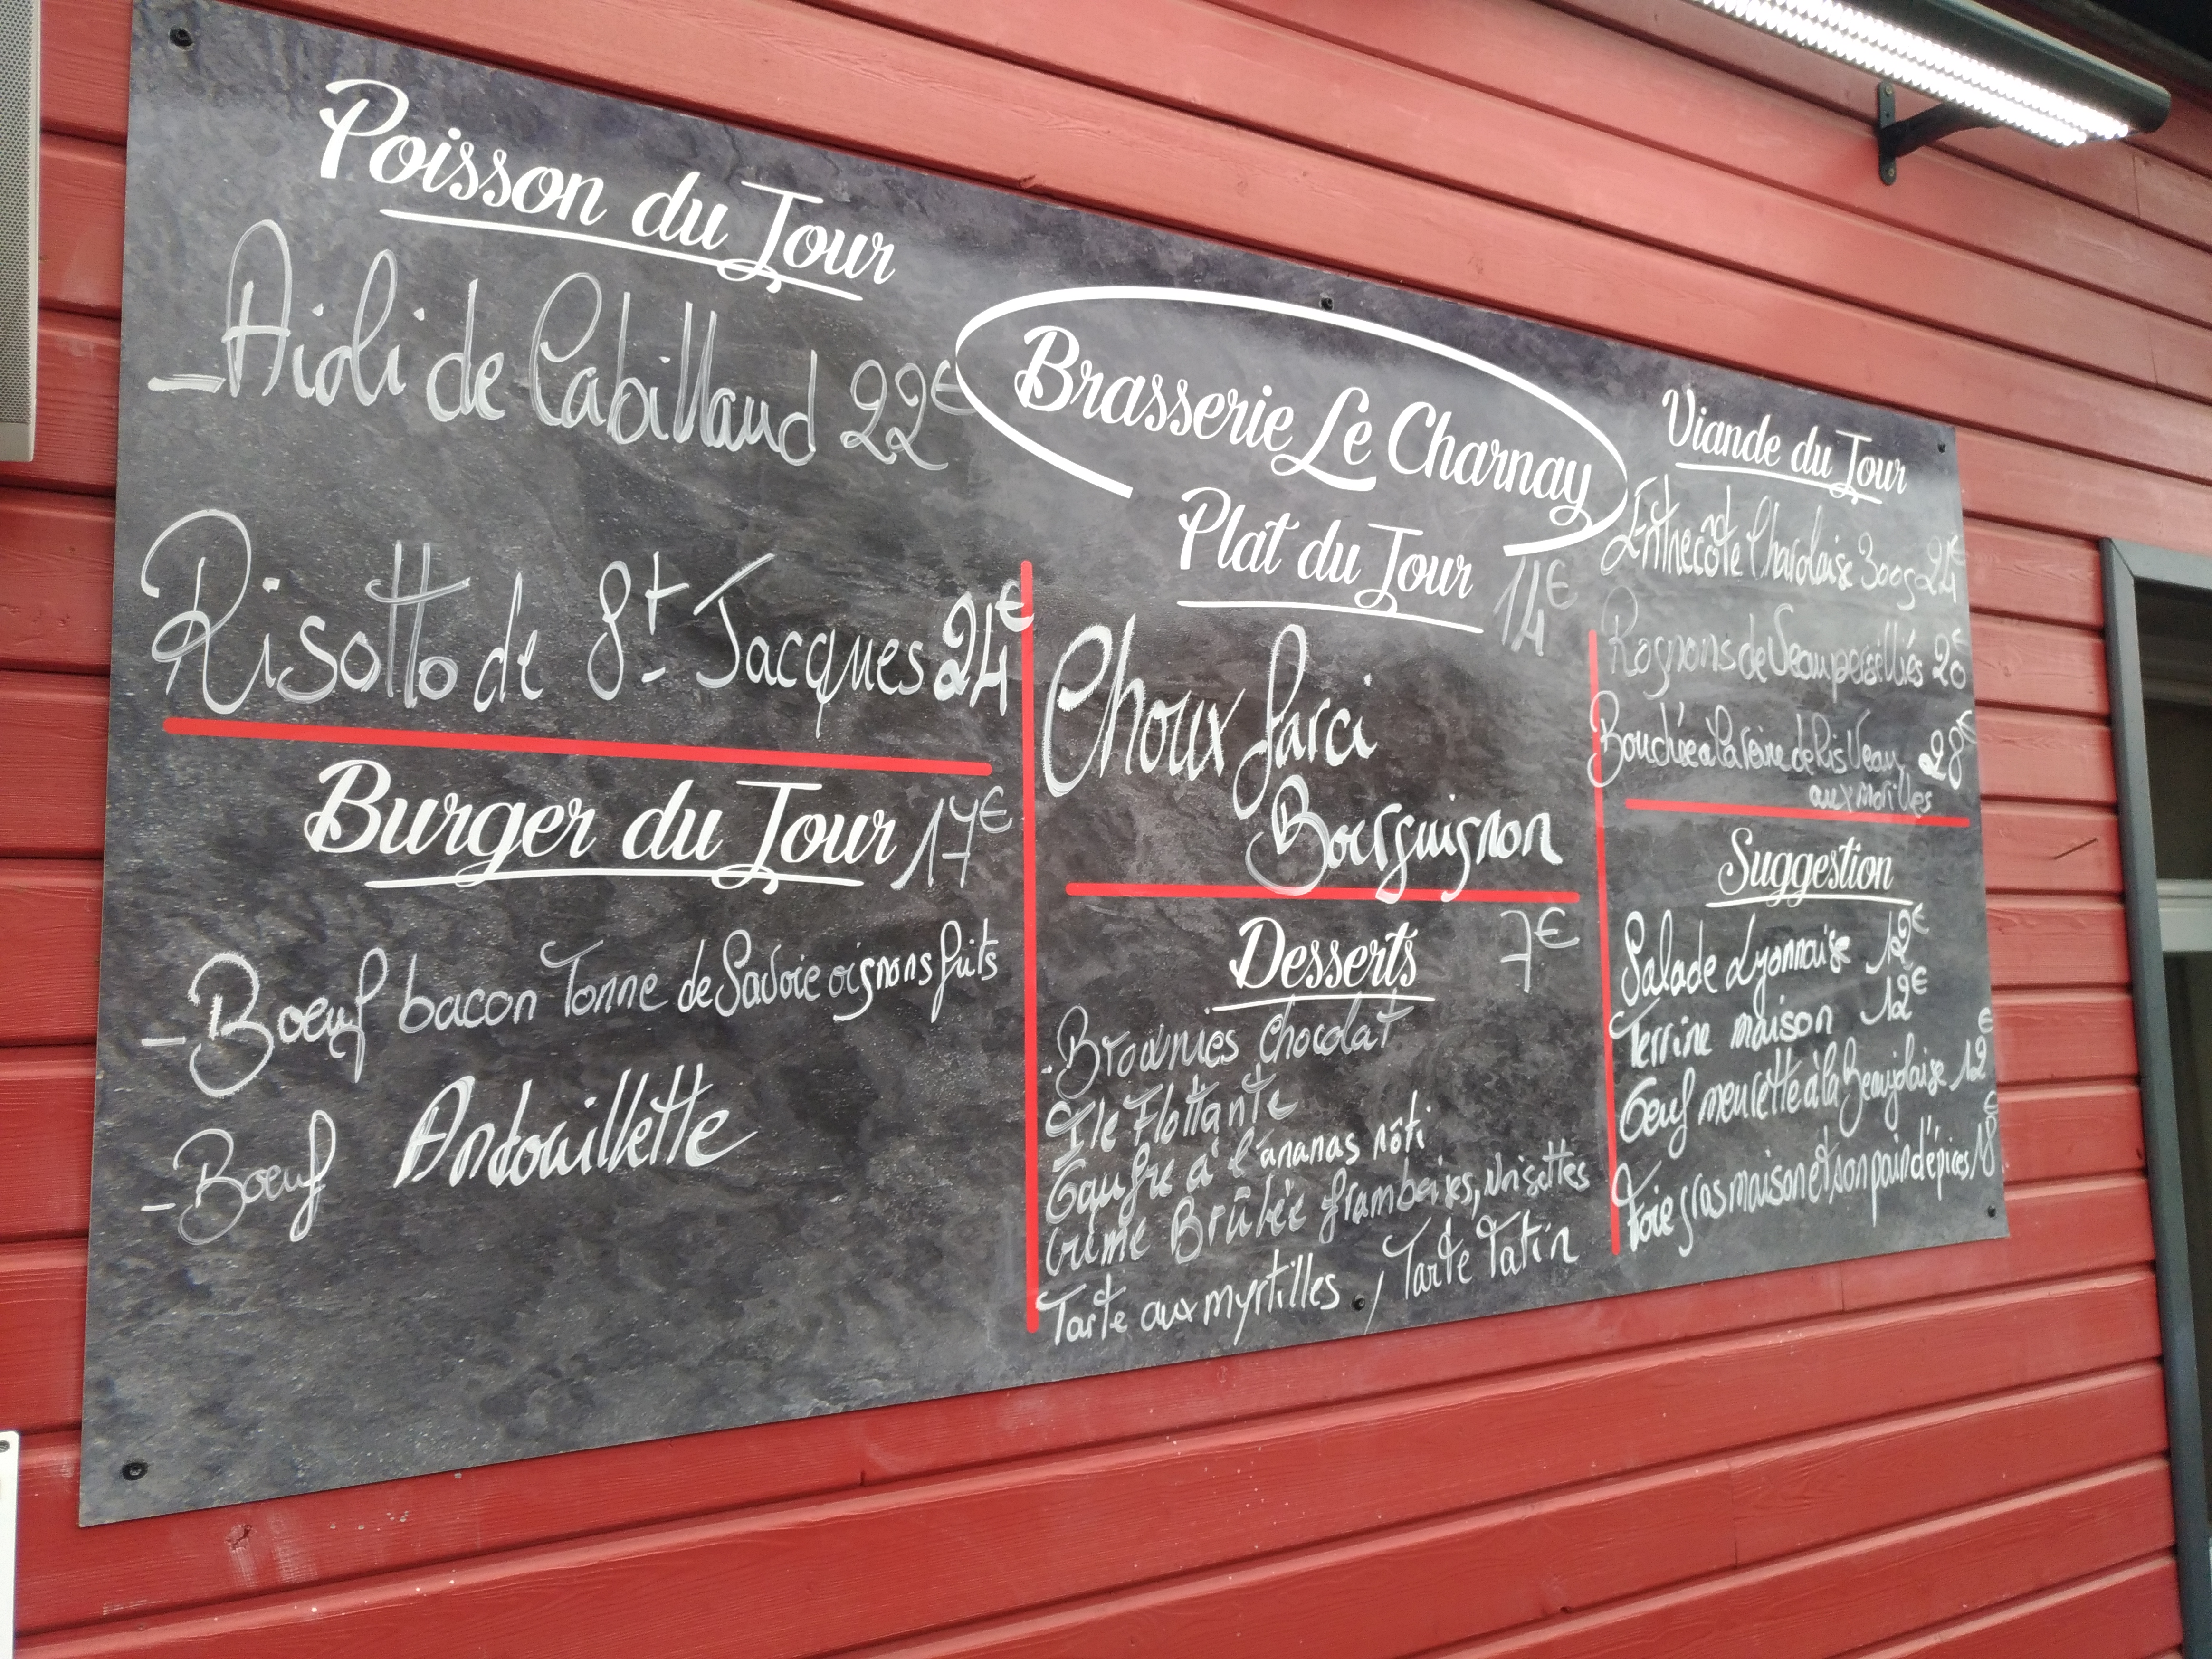 Poisson du Jour
- Aioli de Cabillaud 22€
Risotto de St Jacques 24€
Burger du Jour 17€
- Boeuf bacon Tonne de Savoie oignons frits
- Boeuf Andouillette
Brasserie Le Charnay
Plat du Jour 14€
Choux farci
Bourguignon
Desserts 7€
- Brownies chocolat
Ile Flottante
Gaufre à l'ananas rôti
Crème Brûlée framboises, noisettes
Tarte aux myrtilles, Tarte Tatin
Viande du Jour
Charolaise 300g 24€
Rognons de Veau persillés 20€
Bouchée à la reine de Ris Veau 28€
aux morilles
Suggestion
Salade Lyonnaise 12€
Terrine maison 12€
Oeuf meurette à la Beaujolaise 12€
Foie gras maison et son pain d'épices 18€